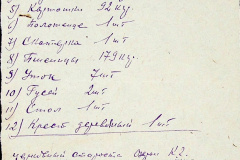 5) Картошки 92 кг.
6) Полотенце 1 шт
7) Скатерка 1 шт
8) Пшеницы 179 кг.
9) Уток 7 шт
10) Гусей 2 шт
11) Стол 1 шт
12) Крест деревянный 1 шт
церковный староста